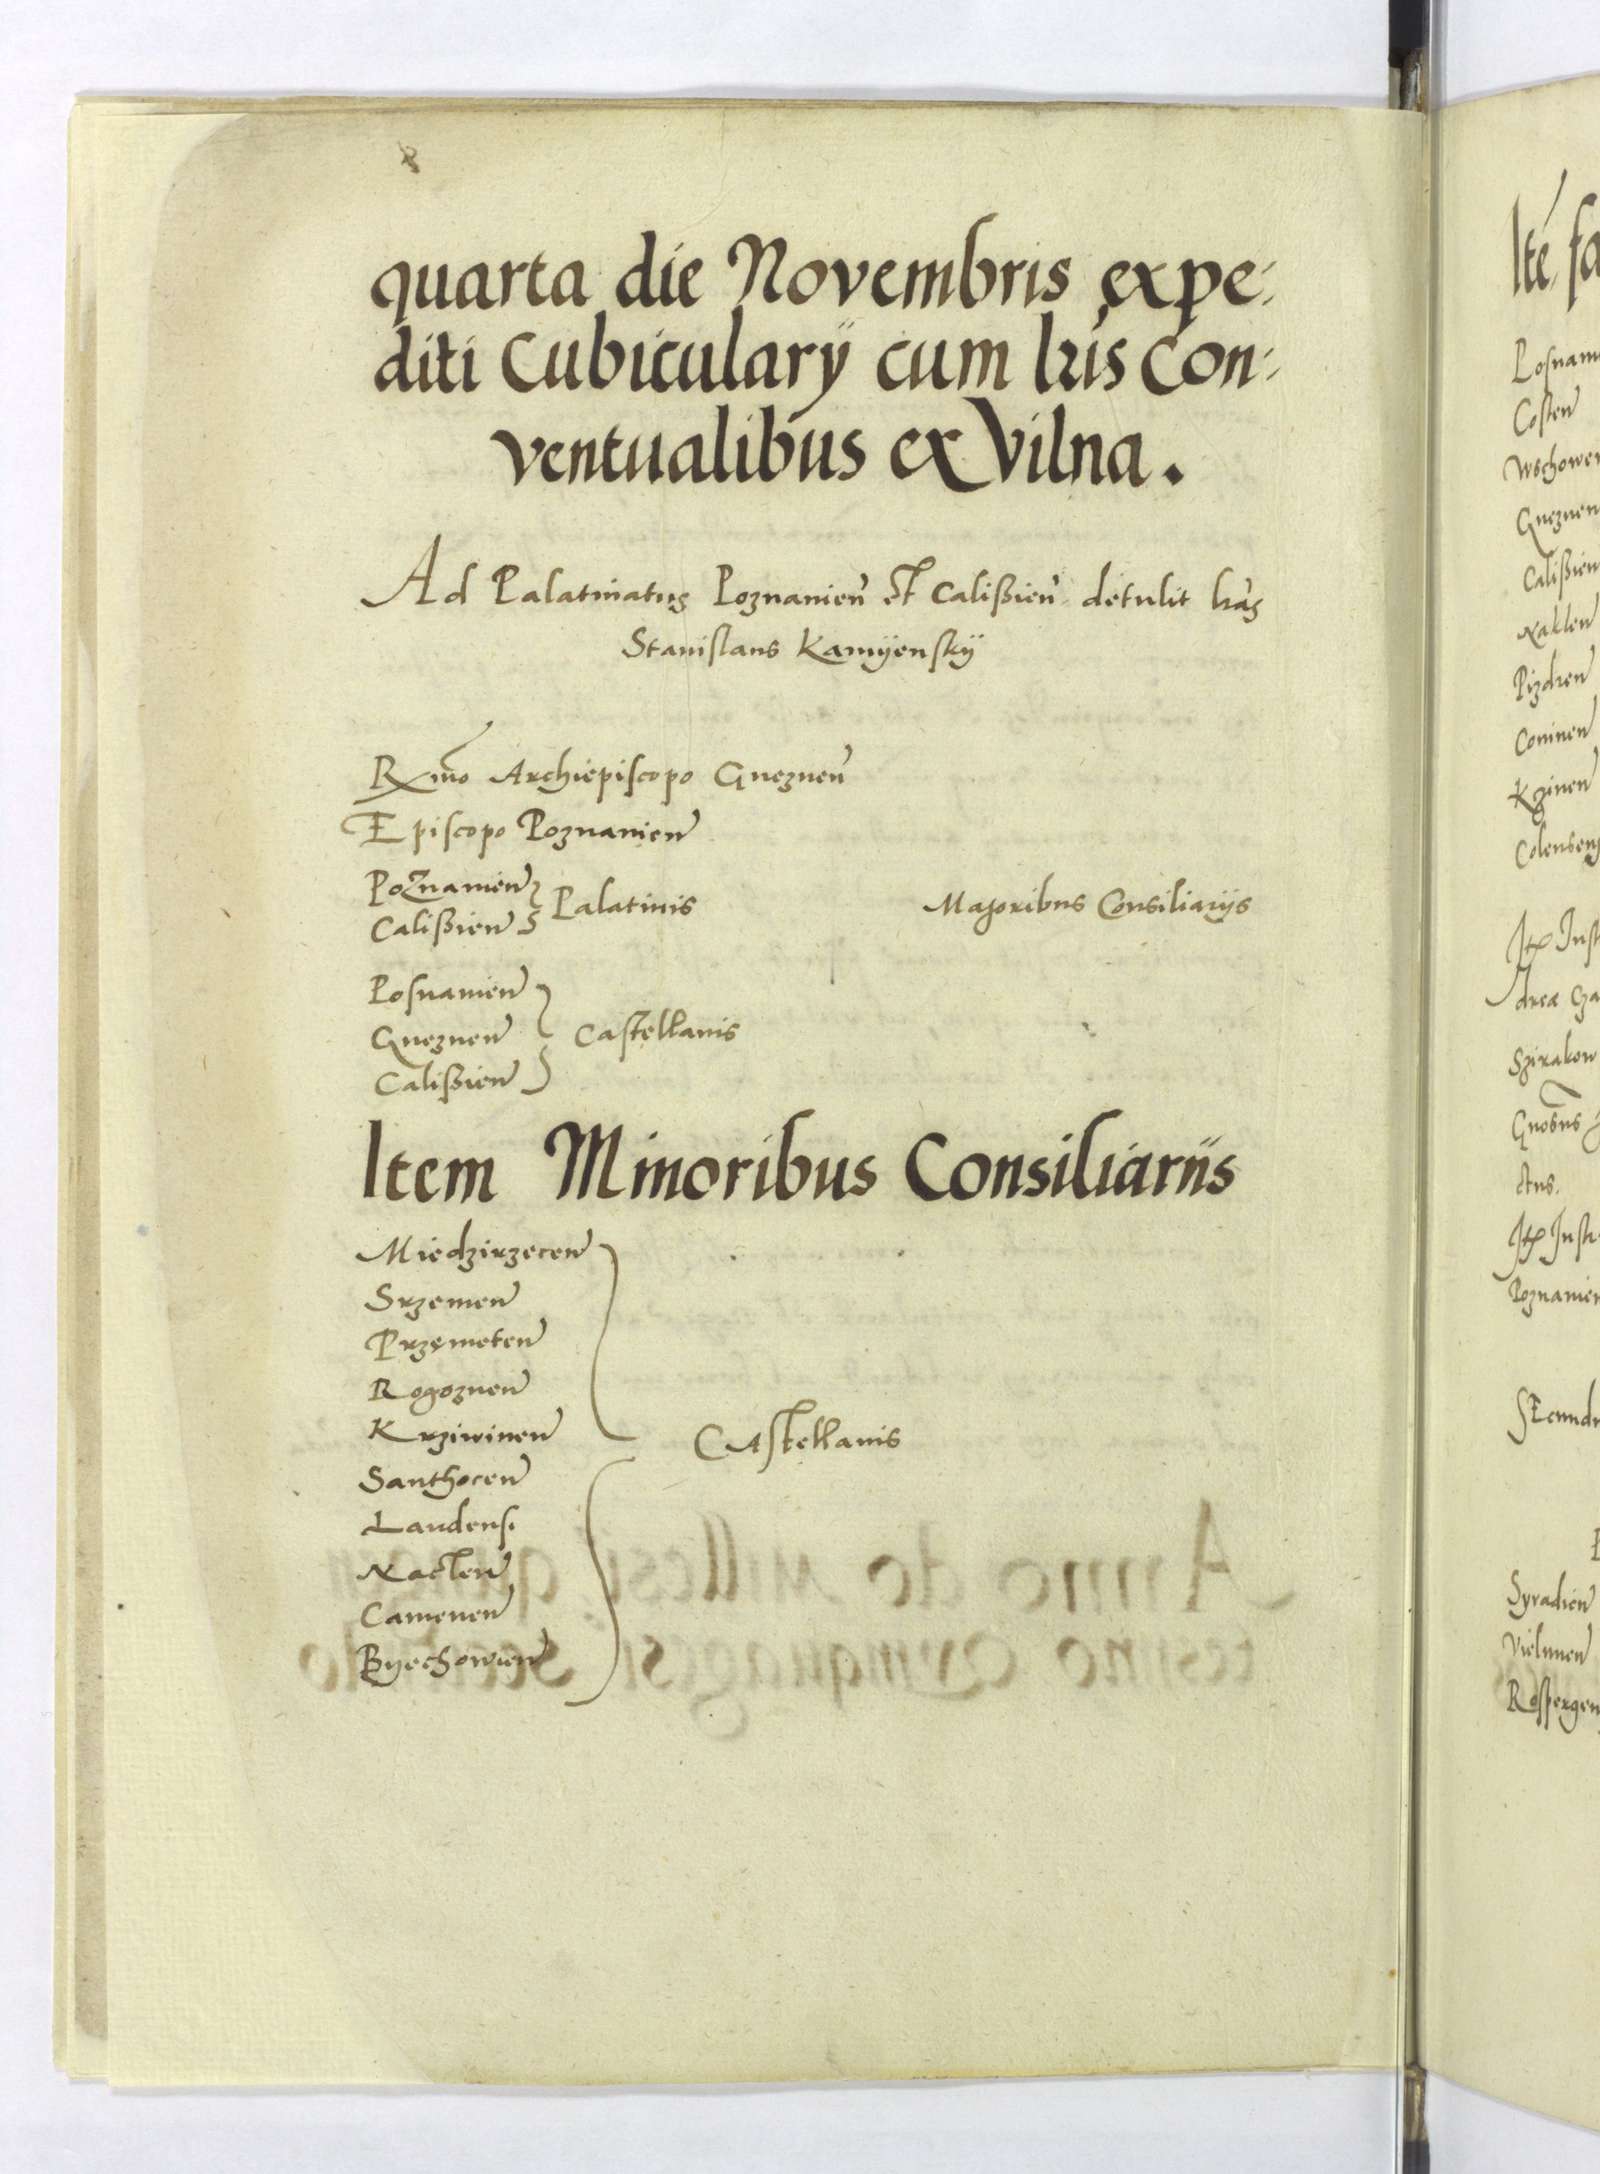 quarta die Novembris expe-
diti Cubicularÿ cum lr̃is Con-
ventualibus ex Vilna.
Ad Palatinatus Poznanien̄ et Calißien̄ detulit lr̃as
Stanislaus Kamÿenskÿ
Rx̄mo Archiepiscopo Gneznen̄
Episcopo Poznanien̄
Poznanien̄
Calißien̄
Palatinis
Majoribus Consiliarÿs
Posnanien̄
Gneznen̄
Calißien̄
Castellanis
Item Minoribus Consiliariis
Miedzirzecen̄
Srzemen̄
Przemeten̄
Rogoznen̄
Krziwinen̄
Santhocen̄
Landensi
Naclen̄
Camenen̄
Byechowien̄
Castellanis
Itē fa
Posnani
Costen̄
Wschowen
Gneznen
Calißien
Naklen̄
Pizdren̄
Coninen̄
Kzinen̄
Colensens
Szirakow
ctus.
Poznanien
Syradien̄
Vielunen̄
Rospergen